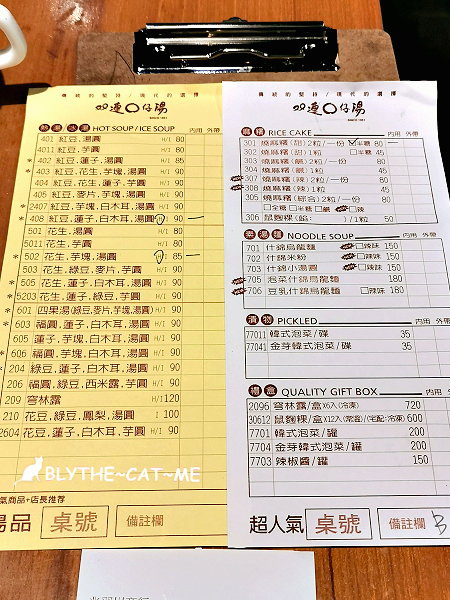 傳統的堅持/現代的選擇
双連〇仔湯
SINCE 1951
熱湯冰湯 HOT SOUP/ICE SOUP 內用 外帶
401 紅豆,湯圓 H/I 80
4011 紅豆,芋圓 H/I 80
* 402 紅豆,蓮子,湯圓 H/I 85
* 403 紅豆,花生,芋塊,湯圓 H/I 90
404 紅豆,花生,蓮子,芋圓 H/I 90
405 紅豆,麥片,芋塊,湯圓 H/I 90
* 2407 紅豆,芋塊,白木耳,湯圓 H/I 90
* 408 紅豆,蓮子,白木耳,湯圓 H/I 90
501 花生,湯圓 H/I 80
5011 花生,芋圓 H/I 80
* 502 花生,芋塊,湯圓 H/I 85
503 花生,綠豆,麥片,芋圓 H/I 90
* 505 花生,蓮子,白木耳,湯圓 H/I 90
5203 花生,蓮子,綠豆,芋圓 H/I 90
* 601 四果湯(綠豆,麥片,芋塊,湯圓) H/I 90
* 603 福圓,蓮子,白木耳,芋圓 H/I 90
605 芋塊,蓮子,白木耳,湯圓 H/I 90
* 606 福圓,芋塊,白木耳,湯圓 H/I 90
* 204 綠豆,蓮子,白木耳,湯圓 H/I 90
206 福圓,綠豆,西米露,芋圓 H/I 90
209 窖林露 H/I 120
210 花豆,綠豆,鳳梨,湯圓 I 100
2604 花豆,蓮子,白木耳,芋圓 H/I 90
BLYTHE~CAT~ME
氣商品+店長推荐
湯品 桌號 備註欄
傳統的堅持/現代的選擇
双連〇仔湯
SINCE 1951
麻糬 RICE CAKE 內用 外帶
301 燒麻糬(甜)2粒/一份 半糖 80
302 燒麻糬(甜)1粒 □半糖 45
303 燒麻糬(鹹)2粒/一份 80
304 燒麻糬(鹹)1粒 45
* 307 燒麻糬(辣)2粒/一份 80
* 308 燒麻糬(辣)1粒 45
305 燒麻糬(綜合)2粒/一份 80
□全糖□半糖□鹹 □辣
306 鼠麴粿(鹹) /1粒 50
素湯麵 NOODLE SOUP 內用 外帶
701 什錦烏龍麵 □辣味 150
702 什錦米粉 □辣味 150
703 什錦小湯圓 □辣味 150
* 705 泡菜什錦烏龍麵 180
* 706 豆乳什錦烏龍麵 □辣味 180
漬物 PICKLED 內用 外帶
77011 韓式泡菜/碟 35
77041 金芽韓式泡菜/碟 35
禮盒 QUALITY GIFT BOX 內用
2096 窖林露/盒X6入(冷凍) 720
30612 鼠麴粿/盒X12入(常溫)(宅配:冷凍) 600
7701 韓式泡菜/罐 200
7704 金芽韓式泡菜/罐 200
7703 辣椒醬/罐 150
超人氣 桌號 備註欄 B